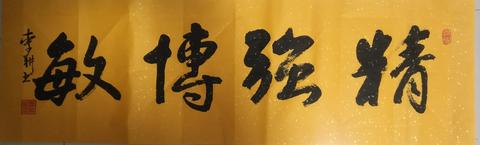 精強博敏
李耕书